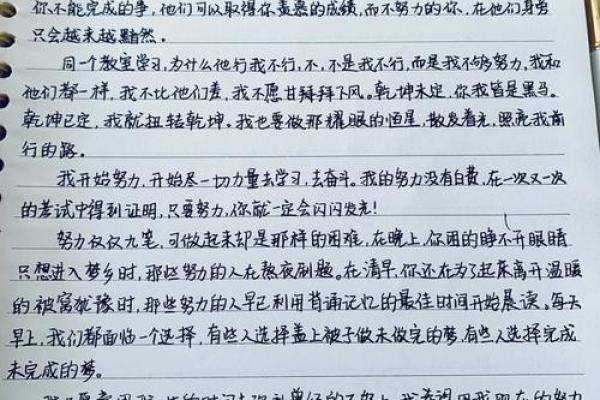 你不能完成的事,他们可以取得你羡慕的成绩,而不努力的你,在他们身旁
只会越来越黯然。
同一个教室学习,为什么他行我不行,不,不是我不行,而是我不够努力,我和
他们都一样,我不比他们差,我不愿甘拜拜下风。乾坤未定,你我皆是黑马。
乾坤已定,我就扭转乾坤。我也要做那耀眼的恒星,散发着光,照亮我前
行的路。
我开始努力,开始尽一切力量去学习,去奋斗。我的努力没有白费,在一次又一次
的考试中得到证明,只要努力,你就一定会闪闪发光!
努力仅仅九笔,可做起来却是那样的困难,在晚上,你困的睁不开眼睛
只想进入梦乡时,那些努力的人在熬夜刷题。在清早,你还在为了起床离开温暖
的被窝犹豫时,那些努力的人早已利用背诵记忆的最佳时间开始晨读。每天
早上,我们都面临一个选择,有些人选择盖上被子做未做完的梦,有些人选择完成
未完成的梦。